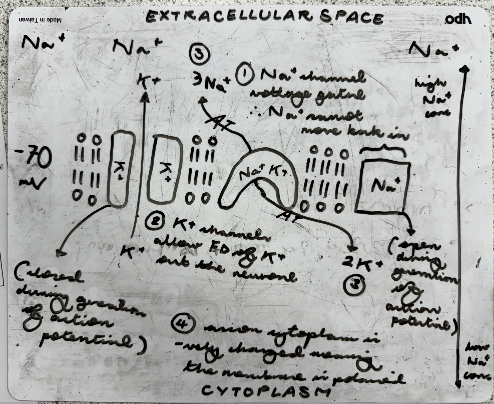 Made in Taiwan
EXTRACELLULAR SPACE
odh
Na⁺
Na⁺
Na⁺
③
K⁺
3Na⁺
① Na⁺ channel
voltage gated
∴ Na⁺ cannot
move back in
high
Na⁺
conc
AT
-70
mV
K⁺
K⁺
Na⁺ K⁺
Na⁺
AT
② K⁺ channels
allow FD of K⁺
out the neurone
K⁺
2K⁺
③
(closed
during generation
of action
potential)
(open
during
generation
of
action
potential)
④ axon cytoplasm is
-vely charged meaning
the membrane is polarised
low
Na⁺
conc
CYTOPLASM